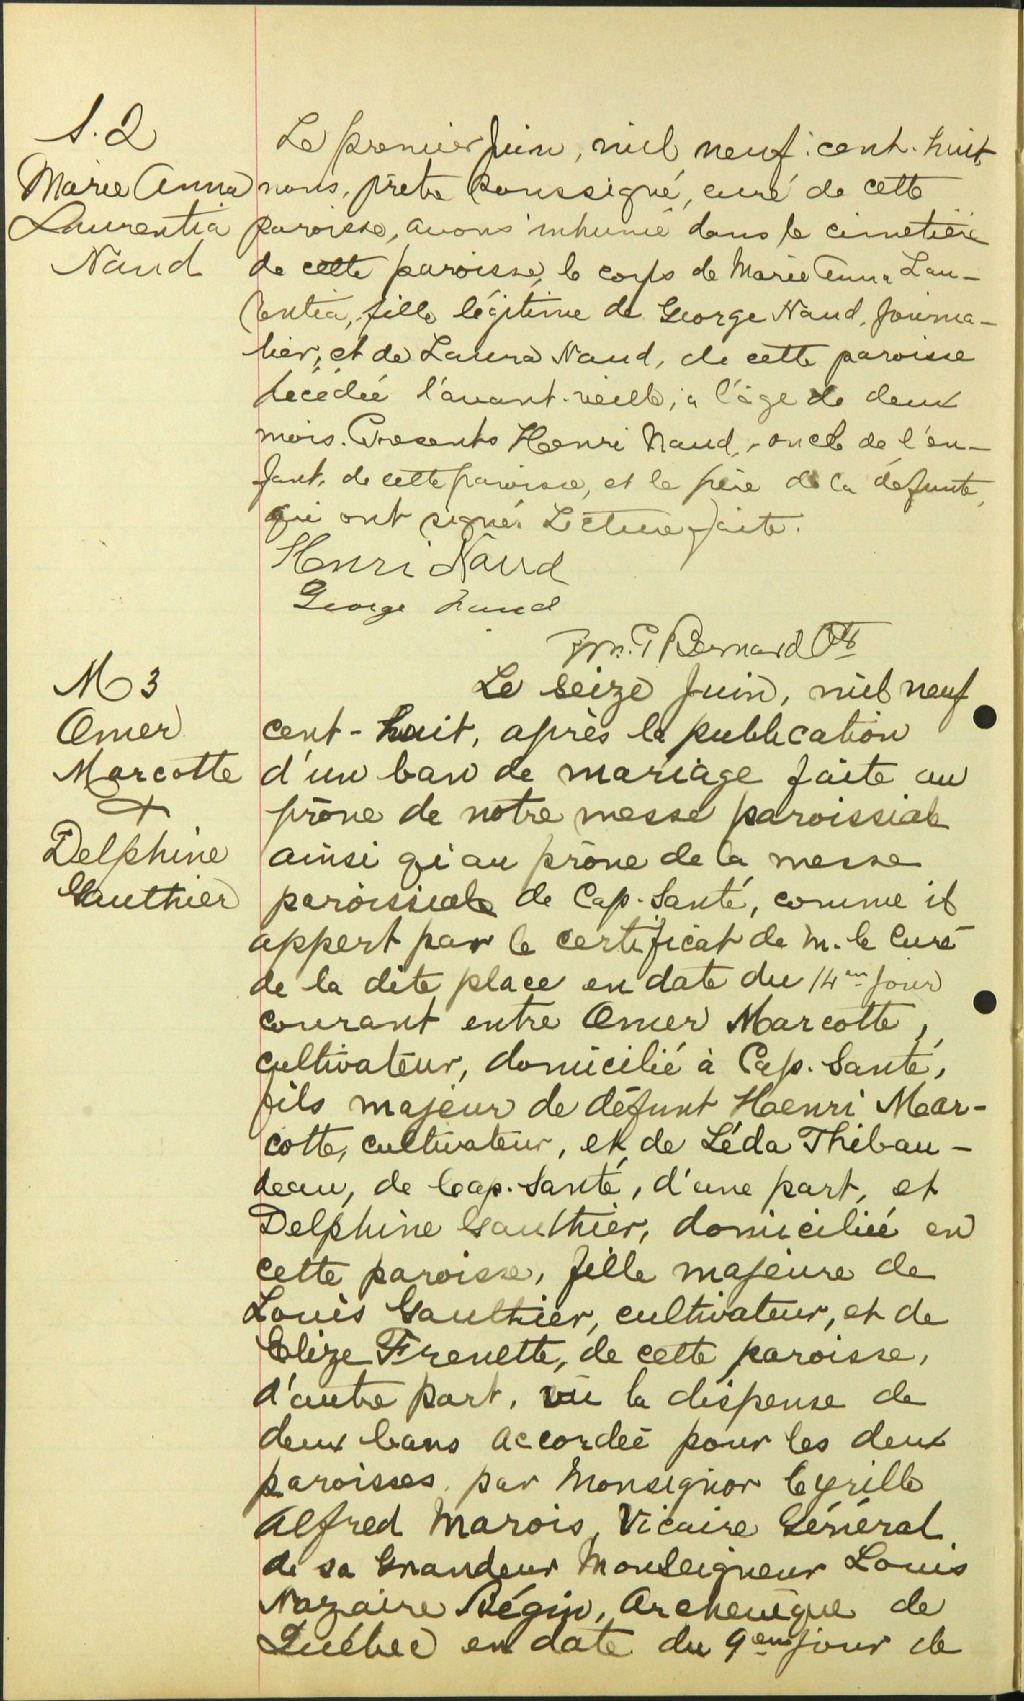 S. 2
Marie Anna
Laurentia
Naud
Le premier Juin, mil neuf. cent. huit
nous, prêtre soussigné, curé de cette
paroisse, avons inhumé dans le cimetière
de cette paroisse, le corps de Marie Anna Lau-
rentia, fille légitime de George Naud, Journa-
lier, et de Laura Naud, de cette paroisse
décédée l'avant-veille, à l'âge de deux
mois. Présents Henri Naud, oncle de l'en-
fant, de cette paroisse, et le père de la défunte,
qui ont signés Lecture faite.
Henri Naud
George Naud
Bernard Ptr
M 3
Omer
Marcotte
+
Delphine
Gauthier
Le seize Juin, mil neuf
cent-huit, après la publication
d'un ban de mariage faite au
prône de notre messe paroissiale
ainsi qu'au prône de la messe
paroissiale de Cap. Santé, comme il
appert par le certificat de M. le Curé
de la dite place en date du 14em jour
courant entre Omer Marcotte,
cultivateur, domicilié à Cap. Santé,
fils majeur de défunt Henri Mar-
cotte, cultivateur, et de Léda Thibau-
deau, de Cap. Santé, d'une part, et
Delphine Gauthier, domiciliée en
cette paroisse, fille majeure de
Louis Gauthier, cultivateur, et de
Elize Frenette, de cette paroisse,
d'autre part, vu la dispense de
deux bans accordée pour les deux
paroisses par Monsignor Cyrille
Alfred Marois, Vicaire Général
de sa Grandeur Monseigneur Louis
Nazaire Bégin, Archevêque de
Québec en date du 9eme jour de